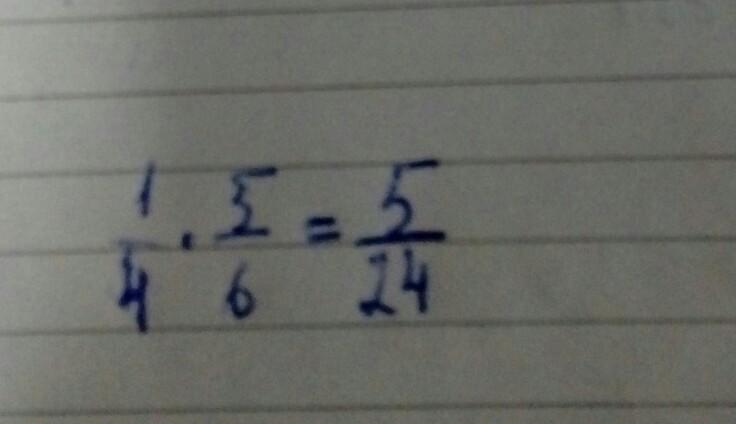 1/4 · 5/6 = 5/24